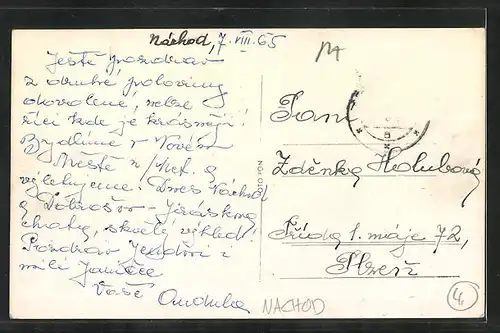 Náchod, 7. VIII. 65
Ještě pozdrav
z druhé poloviny
dovolené, nelze
říci kde je krásněji!
Bydlíme v Novém
Městě n/Met. a
výletujeme. Dnes Náchod
a Dobrošov - Jiráskova
chata, skvělý výhled!
Pozdrav Jendovi i
milé
Vaše Andulka
Paní
Zdeňka Holubová
Třída 1. máje 72,
Plzeň
NÁCHOD
4